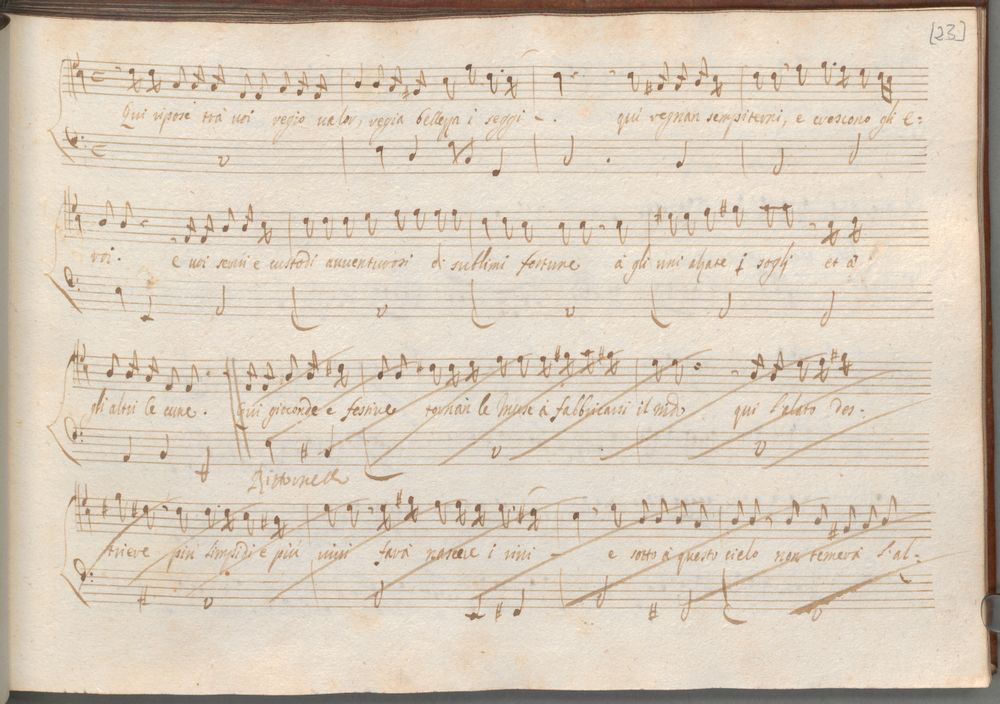 [23]
Qui ripose trà voi regio valor, regia bellezza i seggi -. qui regnan sempiterni, e crescono gli E:
roi. e voi servi e custodi avventurosi di sublimi fortune à gli uni alzate i sogli et à
gli altri le cune. Qui gioconde e festive tornan le Muse à fabbricarsi il nido qui l'alato des:
Rittornello
triere più limpidi e più vivi farà nascere i rivi - e sotto à questo cielo non temerà l'al: